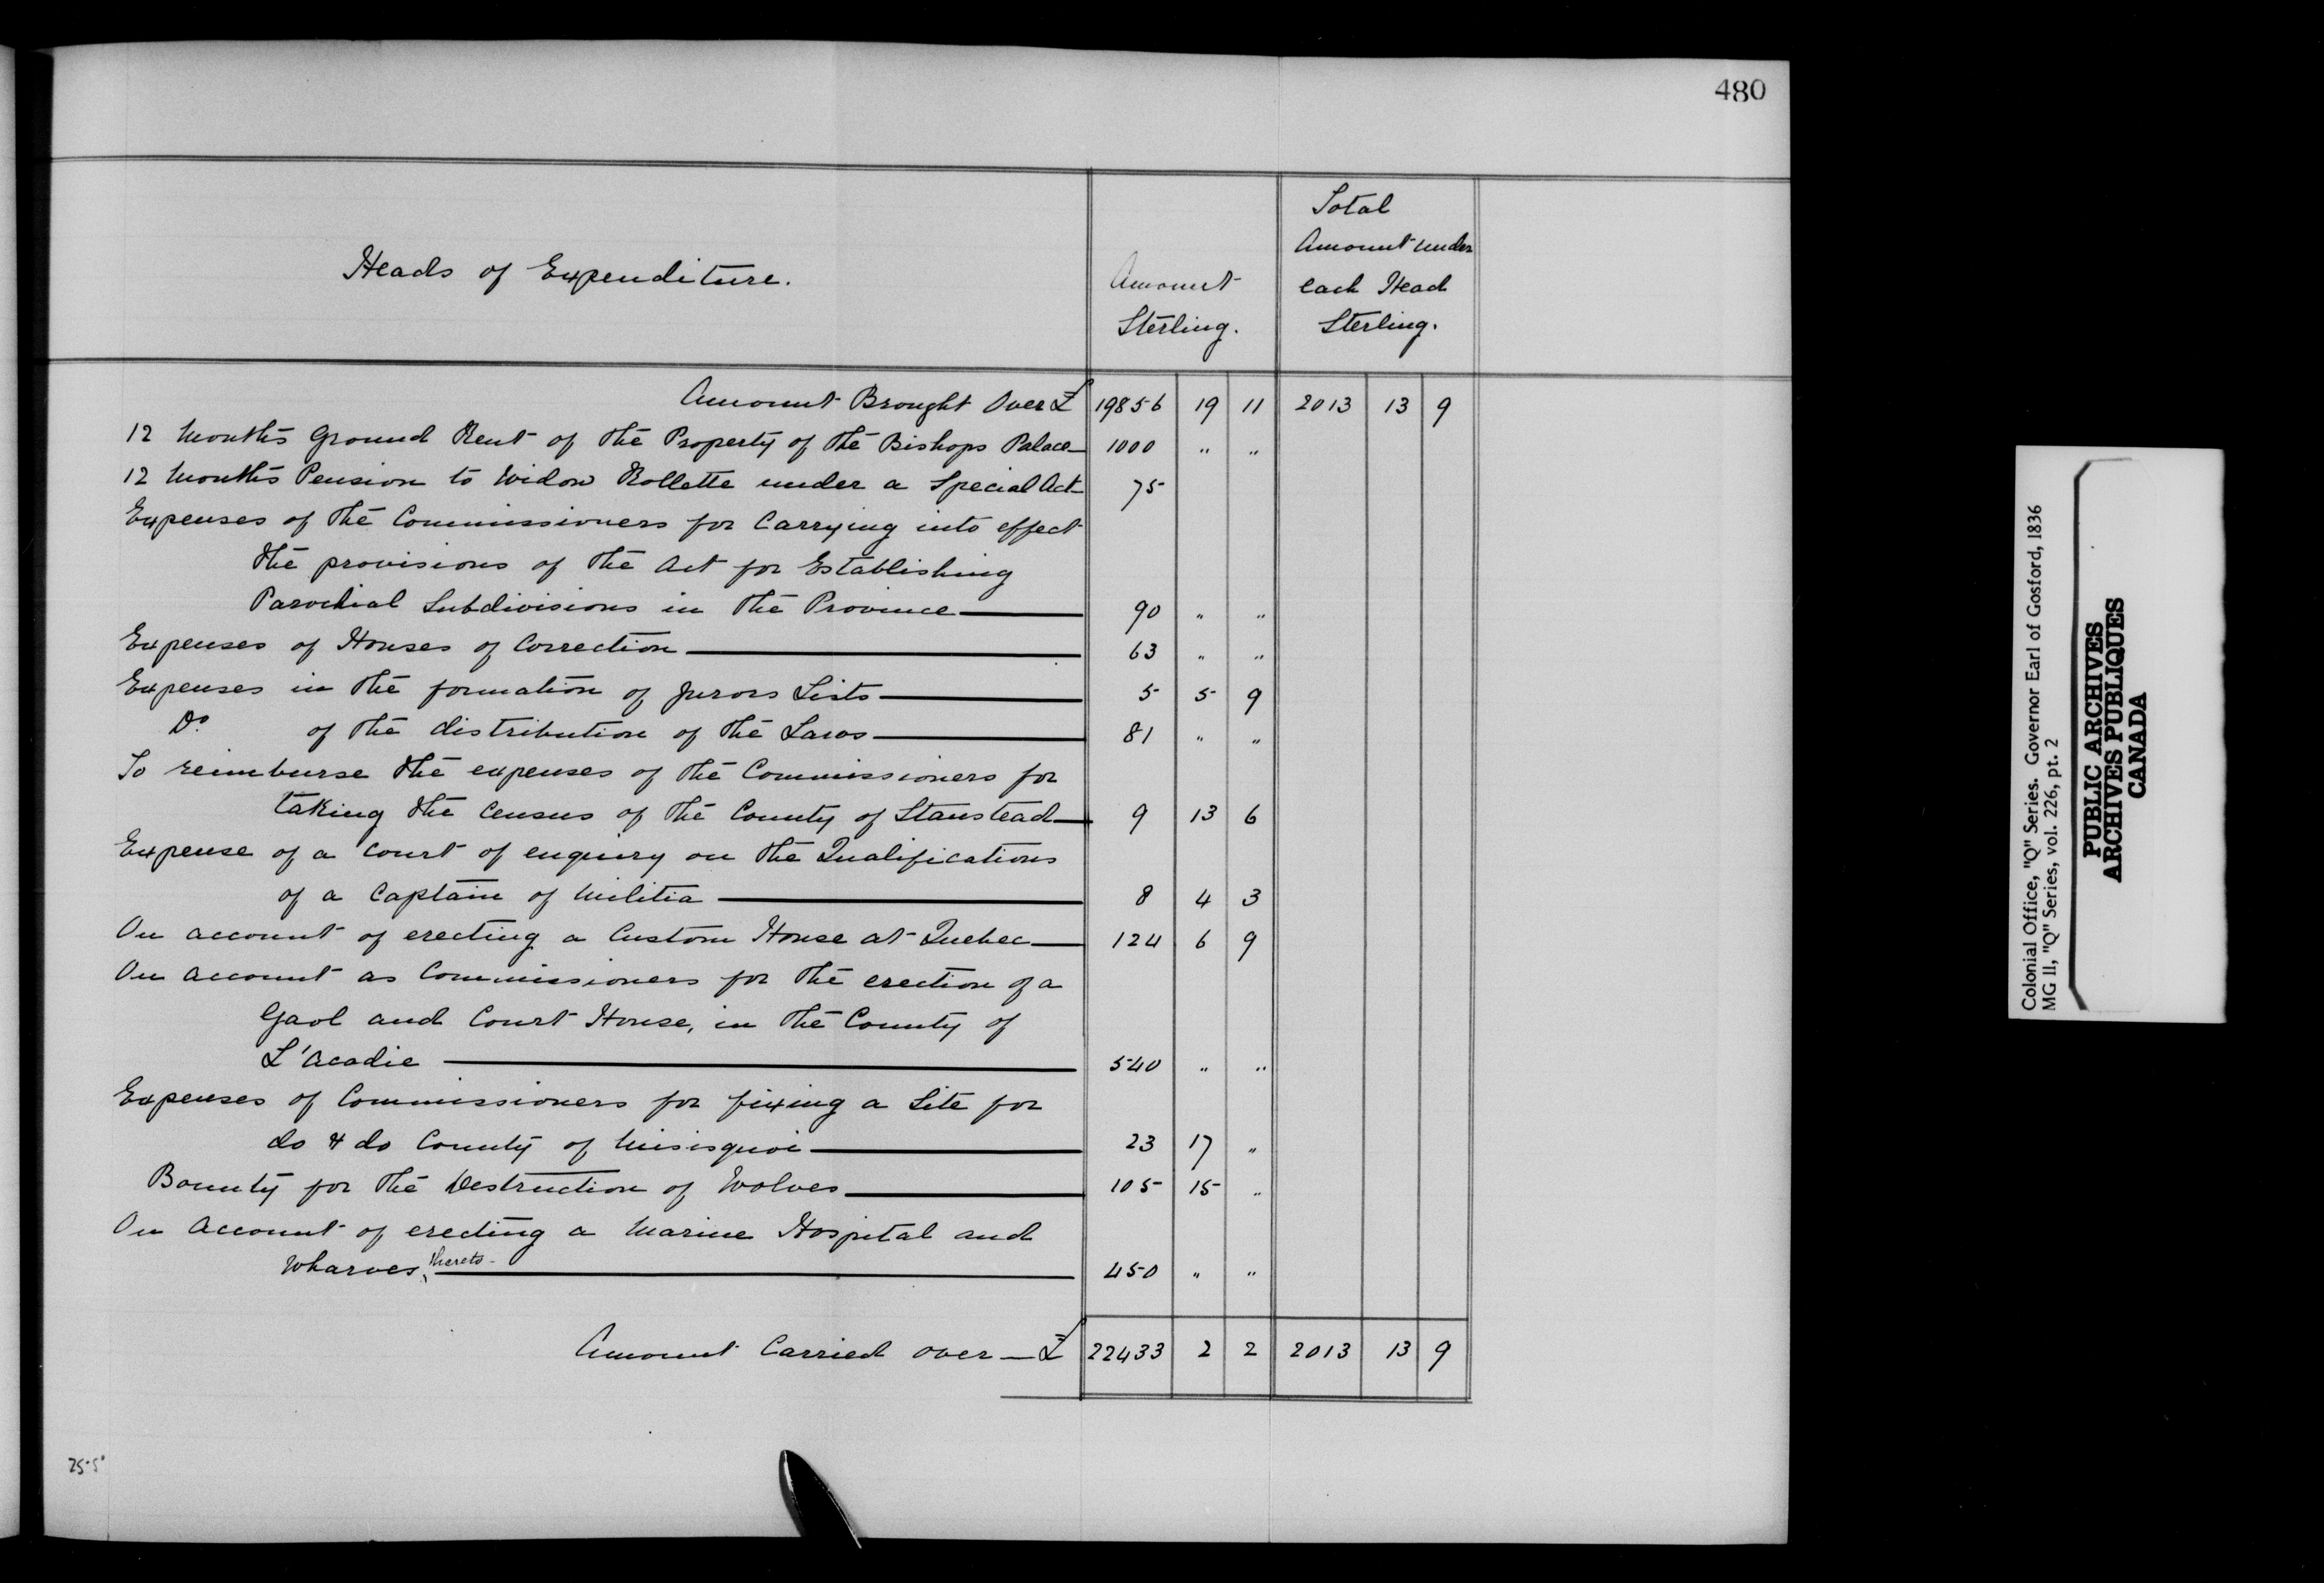 480
Heads of Expenditure.
Amount
Sterling.
Total
Amount under
each Head
Sterling.
Amount Brought Over £ 19856 19 11 2013 13 9
12 Months Ground Rent of the Property of the Bishops Palace 1000 " "
12 Months Pension to Widow Rollette under a Special Act 75
Expenses of the Commissioners for Carrying into effect
the provisions of the Act for Establishing
Parochial Subdivisions in the Province 90 " "
Expenses of Houses of Correction 63 " "
Expenses in the formation of Jurors Lists 5 5 9
Do. of the distribution of the Laws 81 " "
To reimburse the expenses of the Commissioners for
taking the Census of the County of Stanstead 9 13 6
Expense of a Court of enquiry on the Qualifications
of a Captain of Militia 8 4 3
On account of erecting a Custom House at Quebec 124 6 9
On account as Commissioners for the erection of a
Gaol and Court House, in the County of
L'Acadie 540 " "
Expenses of Commissioners for fixing a Site for
do & do County of Misisquoi 23 17 "
Bounty for the Destruction of Wolves 105 15 "
On Account of erecting a Marine Hospital and
Wharves thereto 450 " "
Amount Carried over £ 22433 2 2 2013 13 9
Colonial Office, "Q" Series. Governor Earl of Gosford, 1836
MG 11, "Q" Series, vol. 226, pt. 2
PUBLIC ARCHIVES
ARCHIVES PUBLIQUES
CANADA